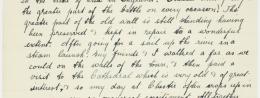 the greater part of the battle on every occasion. The
greater part of the old wall is still standing having
been preserved & kept in repair to a wonderful
extent. After going for a sail up the river in a
steam launch, my friends & I walked as far as we
could on the walls of the town, & then paid a
visit to the Cathedral which is very old & of great
interest, so my day at Chester